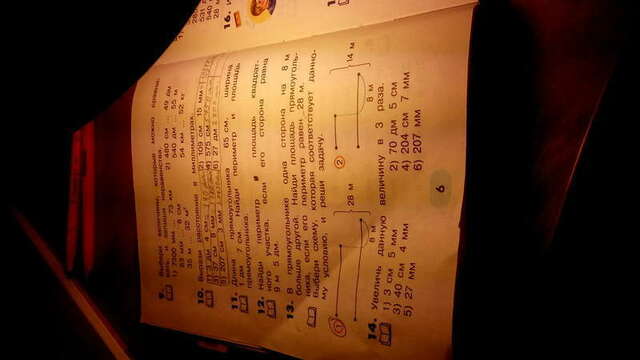 16.
9. Выбери величины, которые можно сравни-
1) 7500 мм ... 73 дм 2) 480 см ... 49 дм
83 мм ... 8 см 540 дм ... 55 м
35 м ... 32 м² 54 км ... 52 кг
10. Вырази расстояние в миллиметрах.
1) 3 дм 4 см 2) 109 см 15 мм
3) 37 см 8 мм 4) 575 см
5) 205 см 3 мм 6) 27 дм
11. Длина прямоугольника 65 см, ширина
1 дм 7 см. Найди периметр и площадь
прямоугольника.
12. Найди периметр и площадь квадрат-
ного участка, если его сторона равна
9 м 5 дм.
13. В прямоугольнике одна сторона на 8 м
больше другой. Найди площадь прямоуголь-
ника, если его периметр равен 28 м.
Выбери схему, которая соответствует данно-
му условию, и реши задачу.
1 28 м 2 14 м
8 м 8 м
14. Увеличь данную величину в 3 раза.
1) 3 см 5 мм 2) 70 дм 5 см
3) 40 см 4 мм 4) 204 см 7 мм
5) 27 мм 6) 207 мм
6